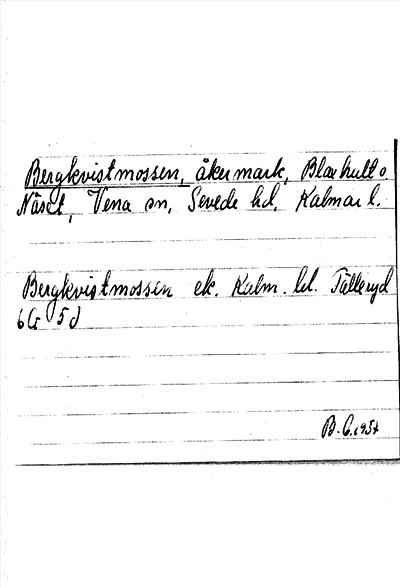 Bergkvistmossen, åkermark, Blaxhult o.
Näset, Vena sn, Sevede hd, Kalmar l.
Bergkvistmossen ek. Kalm. bl. Tälleryd
6G 5d
B.C. 1957